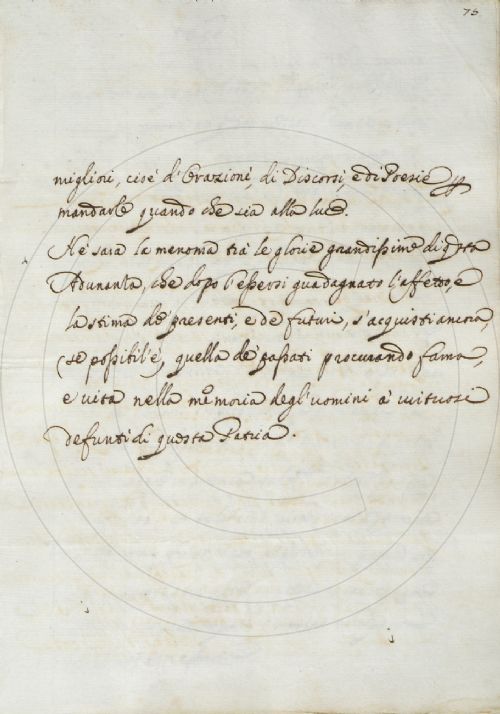 75
migliori, cioè d'Orazioni, di Discorsi, e di Poesie p
mandarle quando che sia alla luce.
Nè sarà la menoma trà le glorie grandissime di qsta
Adunanza, che dopo l'essersi guadagnato l'affetto, e
la stima de' presenti, e de' futuri, s'acquisti ancora,
(se possibil'è) quella de' passati procurando fama,
e vita nella memoria degl'uomini a' virtuosi
defunti di questa Patria.